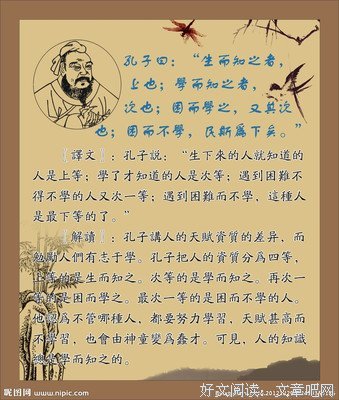 孔子曰：“生而知之者，
上也；學而知之者，
次也；困而學之，又其次
也；困而不學，民斯爲下矣。”
〖譯文〗：孔子說：“生下來的人就知道的
人是上等；學了才知道的人是次等；遇到困難不
得不學的人又次一等；遇到困難而不學，這種人
是最下等的了。”
〖解讀〗：孔子講人的天賦資質的差异，而
勉勵人們有志于學。孔子把人的資質分爲四等，
上等的是生而知之。次等的是學而知之。再次一
等的是困而學之。最次一等的是困而不學的人。
他認爲不管哪種人，都要努力學習，天賦甚高而
不學習，也會由神童變爲蠢才。可見，人的知識
總是學而知之的。
昵图网 www.nipic.com
好文阅读-文章吧网